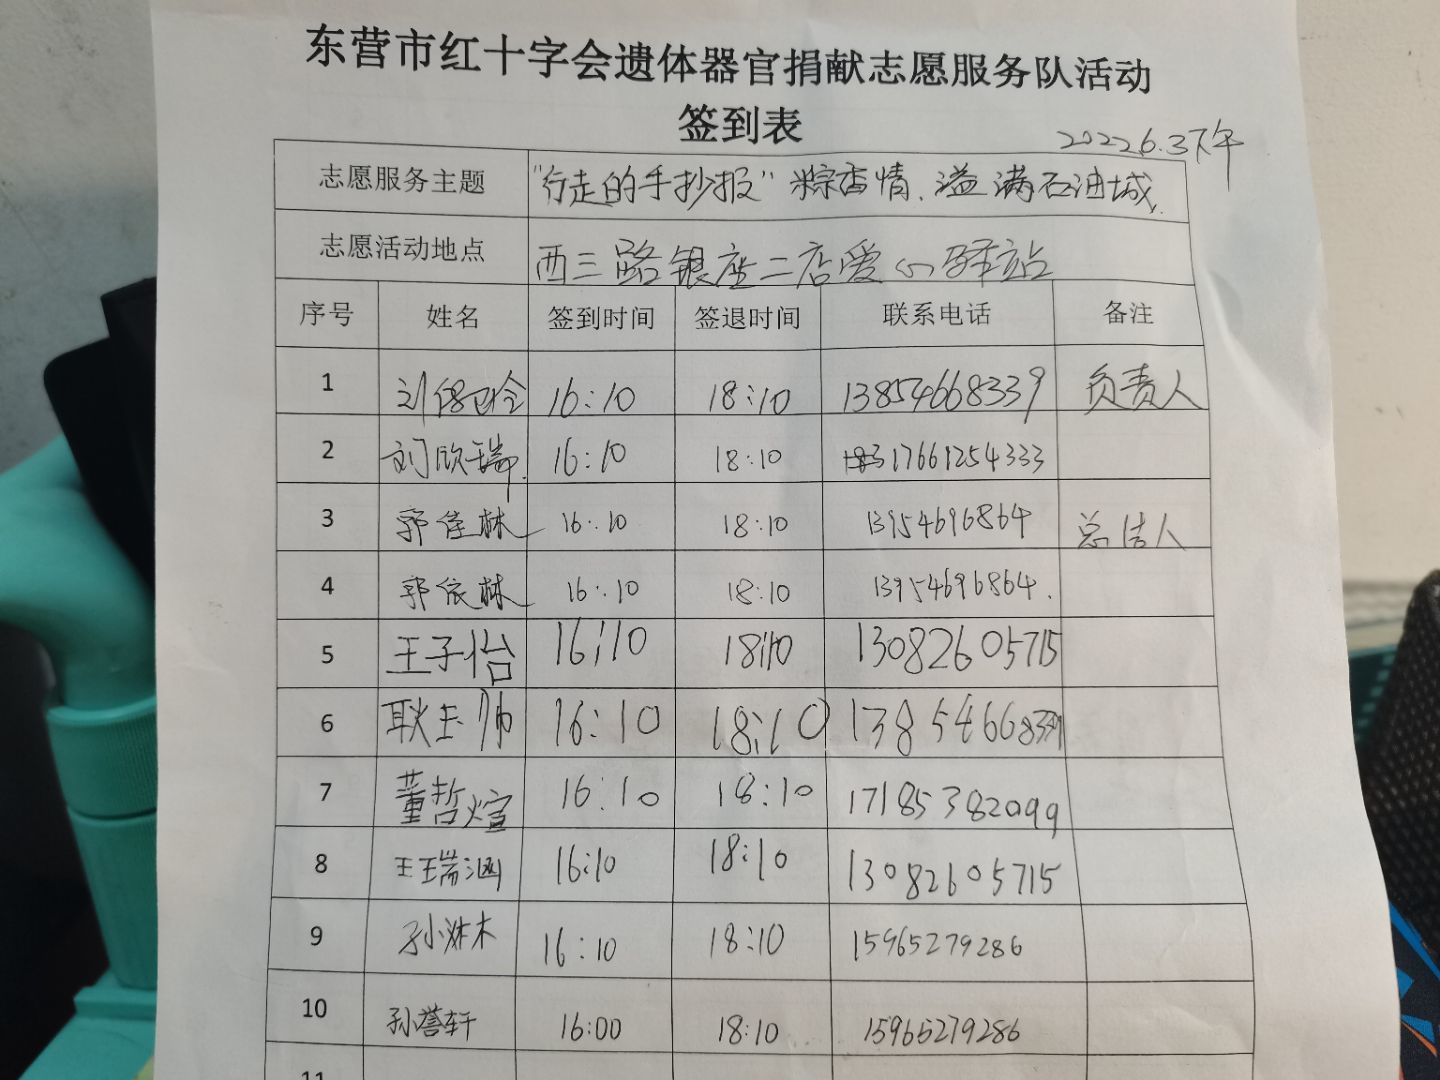 东营市红十字会遗体器官捐献志愿服务队活动
签到表
2022.6.3下午
志愿服务主题 "行走的手抄报"粽香情、溢满石油城.
志愿活动地点 西三路银座二店爱心驿站
序号 姓名 签到时间 签退时间 联系电话 备注
1 刘 16:10 18:10 13854668339 负责人
2 刘欣瑞 16:10 18:10 17661254333
3 郭佳林 16:10 18:10 13954696864 总结人
4 郭依林 16:10 18:10 13954696864.
5 王子怡 16:10 18:10 13082605715
6 耿玉 16:10 18:10 13854668339
7 董哲煊 16:10 18:10 17185382099
8 王瑞涵 16:10 18:10 13082605715
9 孙 木 16:10 18:10 15965279286
10 孙誉轩 16:00 18:10 15965279286
11